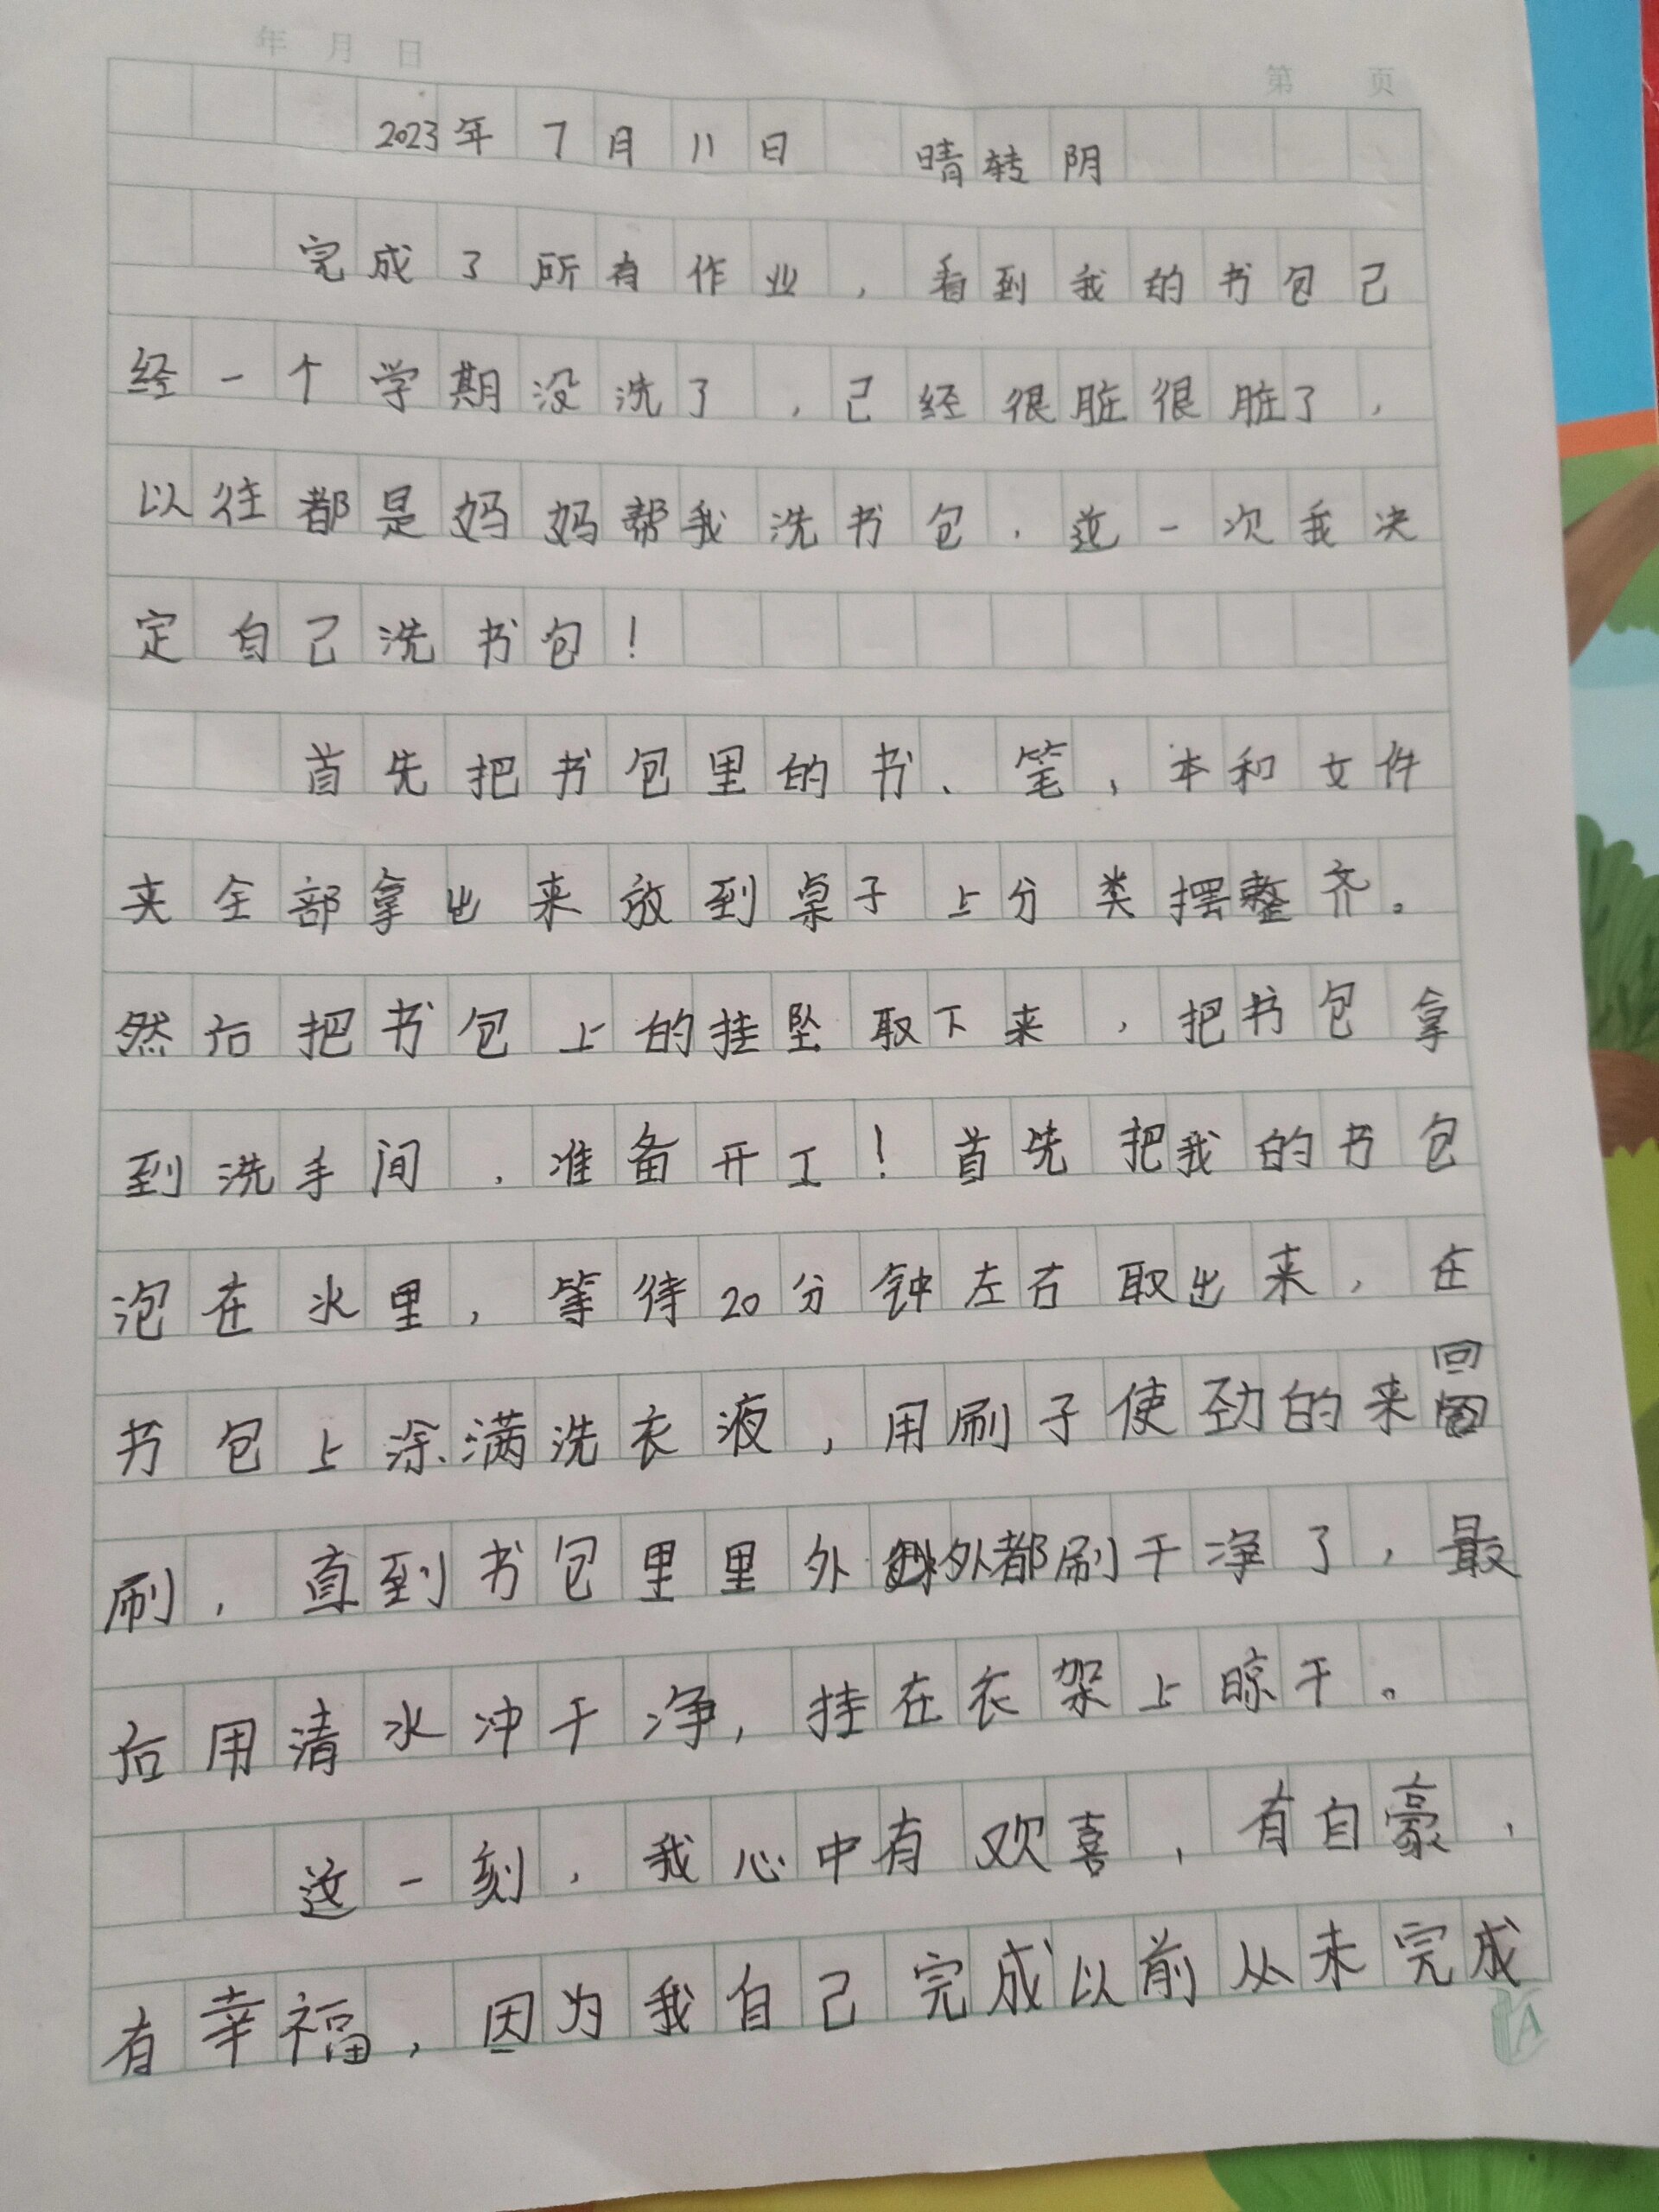 年 月 日
第 页
2023年7月11日 晴转阴
完成了所有作业，看到我的书包己
经一个学期没洗了，己经很脏很脏了，
以往都是妈妈帮我洗书包，这一次我决
定自己洗书包！
首先把书包里的书、笔，本和文件
夹全部拿出来放到桌子上分类摆整齐。
然后把书包上的挂坠取下来，把书包拿
到洗手间，准备开工！首先把我的书包
泡在水里，等待20分钟左右取出来，在
书包上涂满洗衣液，用刷子使劲的来回
刷，直到书包里里外外都刷干净了，最
后用清水冲干净，挂在衣架上晾干。
这一刻，我心中有欢喜，有自豪，
有幸福，因为我自己完成以前从未完成